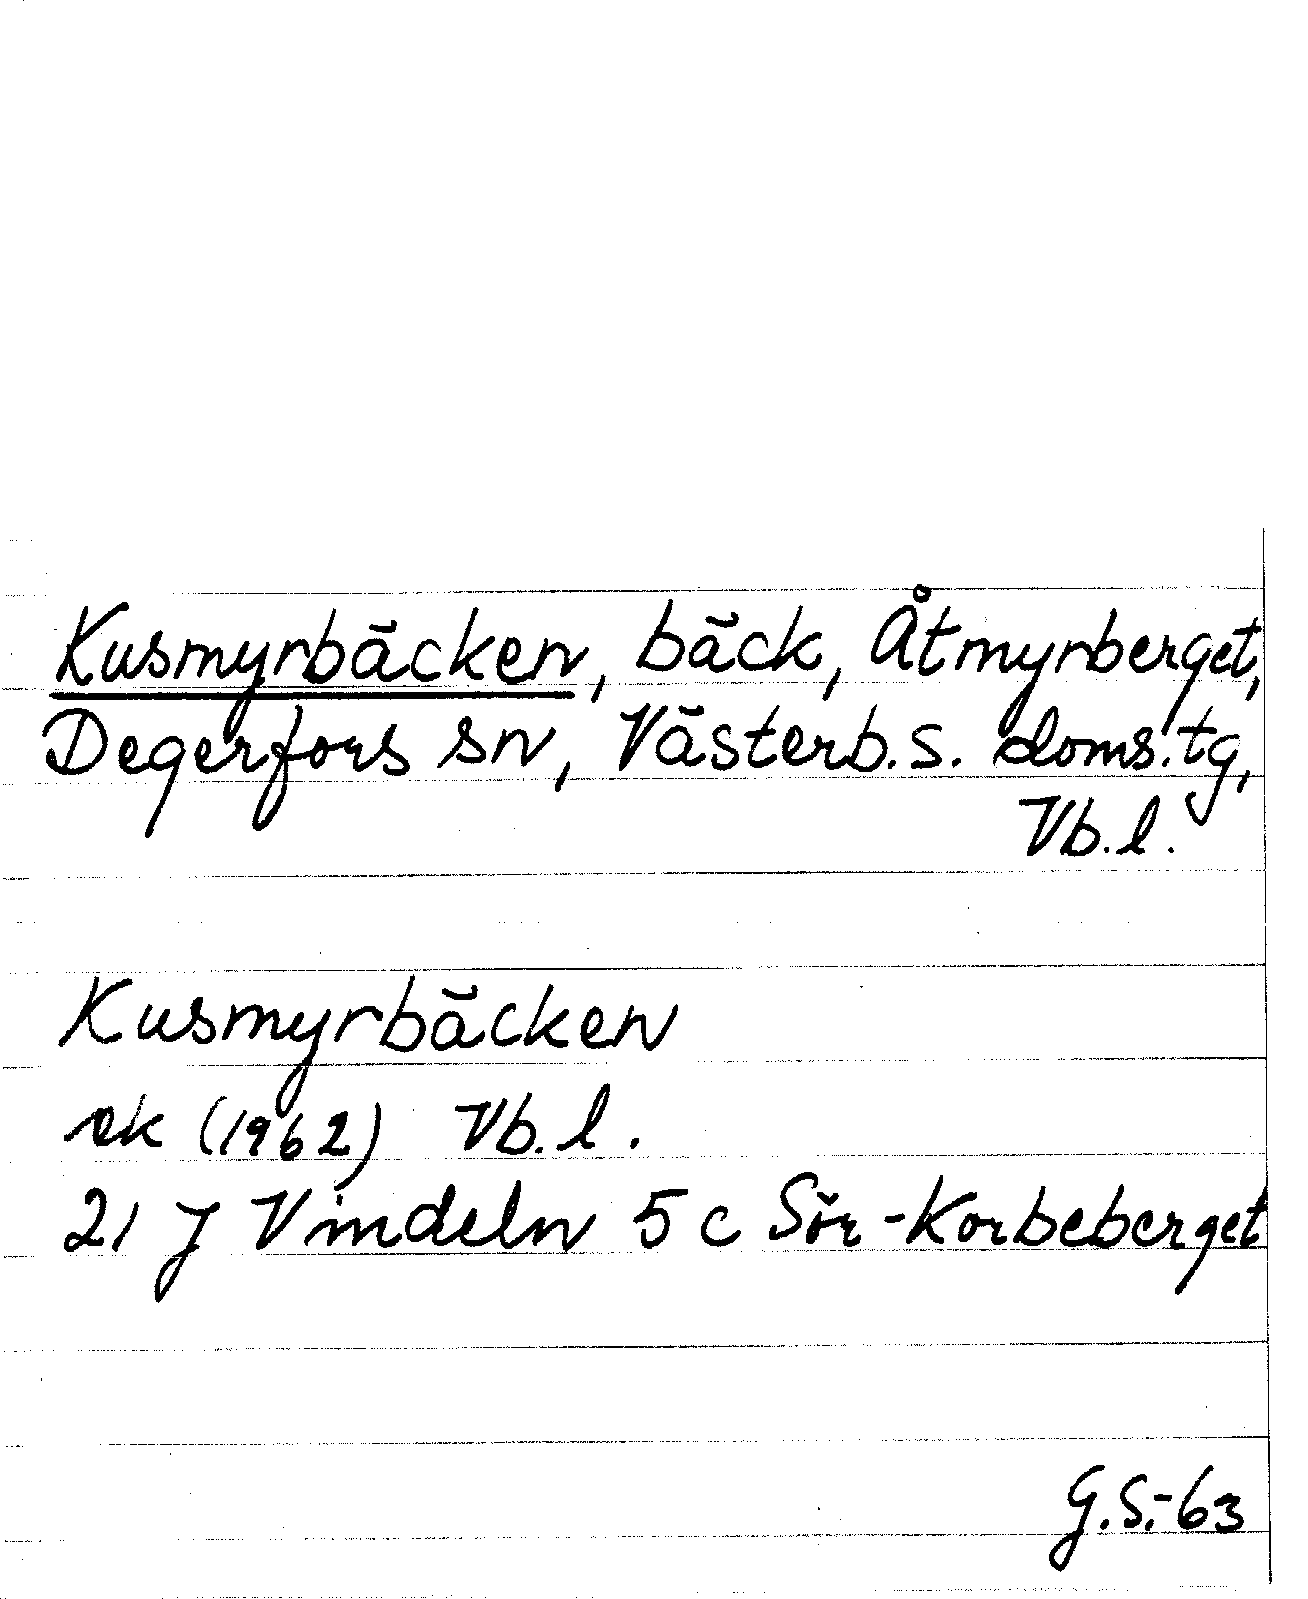 Kusmyrbäcken, bäck, Åtmyrberget,
Degerfors sn, Västerb. s. doms. tg,
Vb. l.
Kusmyrbäcken
ek (1962) Vb. l.
21 J Vindeln 5 c Sör-Korbeberget
G.S.-63